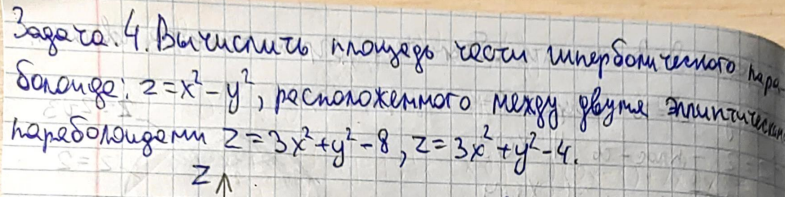 Задача.4. Вычислить площадь части гиперболического пара-
болоида: z=x²-y², расположенного между двумя эллиптическими
параболоидами z=3x²+y²-8, z=3x²+y²-4.
z